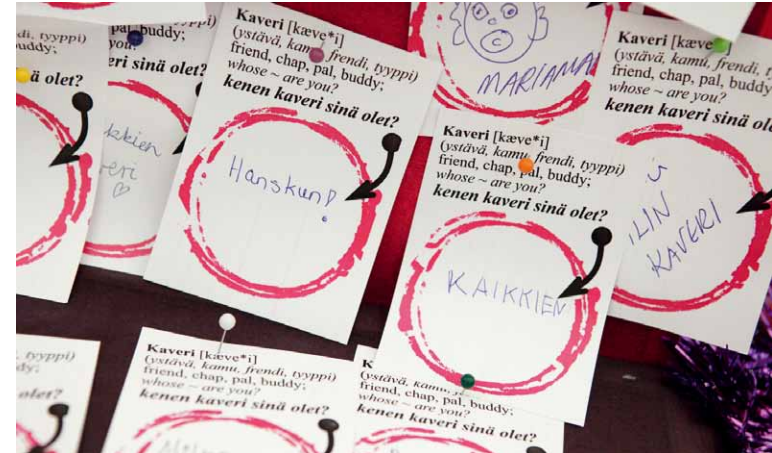 tyyppi)
udy;
ä olet?
(ystävä, kamu,
pal, buddy;
are you?
ri sinä olet?
kkien
veri
Kaveri [kæve*i]
(ystävä, kamu, frendi, tyyppi)
friend, chap, pal, buddy;
whose ~ are you?
kenen kaveri sinä olet?
Hanskun!
MARIAMA
Kaveri [kæve*i]
(ystävä, kamu, frendi, tyyppi)
friend, chap, pal, buddy;
whose ~ are you?
kenen kaveri sinä olet?
KAIKKIEN
Kaveri [kæve
(ystävä, kamu, frendi, t
friend, chap, pal, buddy
whose ~ are you?
kenen kaveri sinä ol
ILIN
KAVERI
tyyppi)
dy;
olet?
Kaveri [kæve*i]
(ystävä, kamu, frendi, tyyppi)
friend, chap, pal, buddy;
whose ~ are you?
kenen kaveri sinä olet?
K
(ystävä, kamu,
friend, chap, pal, buddy;
whose ~ are you?
kenen kaveri sinä olet?